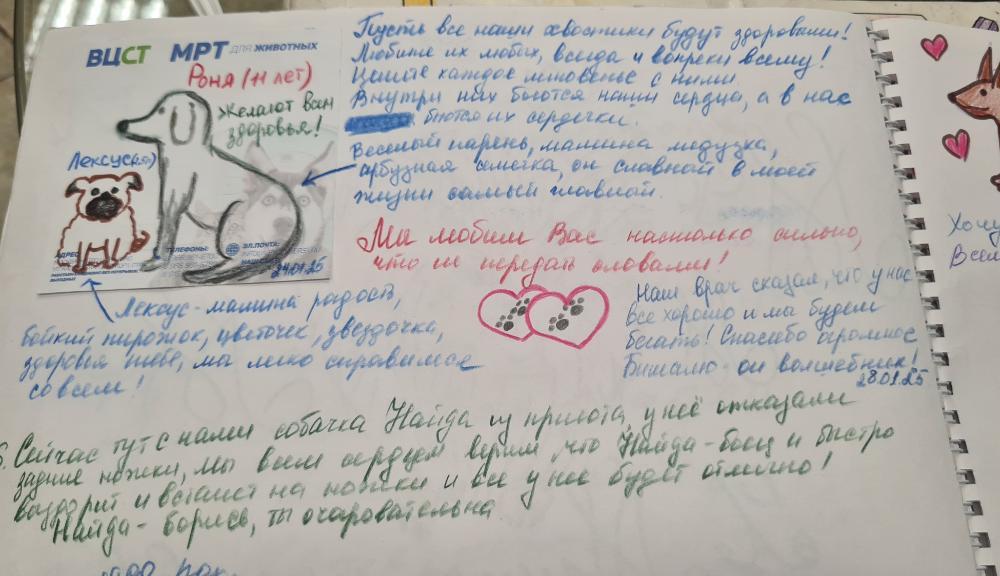 ВЦСТ МРТ для животных
Роня (11 лет)
Желают всем
здоровья!
Лексус
ТЕЛЕФОНЫ:
ЭЛ.ПОЧТА:
АДРЕС
24.01.25
Пусть все наши хвостики будут здоровыми!
Любите их любых, всегда и вопреки всему!
Цените каждое мгновенье с ними.
Внутри них бьются наши сердца, а в нас
бьются их сердечки.
Веселый парень, мамина медузка,
арбузная семечка, он славной в моей
жизни самый главной.
Мы любим Вас настолько сильно,
что не передать словами!
Лексус - мамина радость,
бойкий пирожок, цветочек, звездочка,
здоровья тебе, мы легко справимся
со всем!
Наш врач сказал, что у нас
все хорошо и мы будем
бегать! Спасибо огромное
- он волшебник!
28.01.25
Сейчас тут с нами собачка Найда из приюта, у неё отказали
задние ножки, мы всем сердцем верим, что Найда - боец и быстро
и встанет на ножки и все у нее будет отлично!
Найда - борись, ты очаровательна
Хочу
Всем